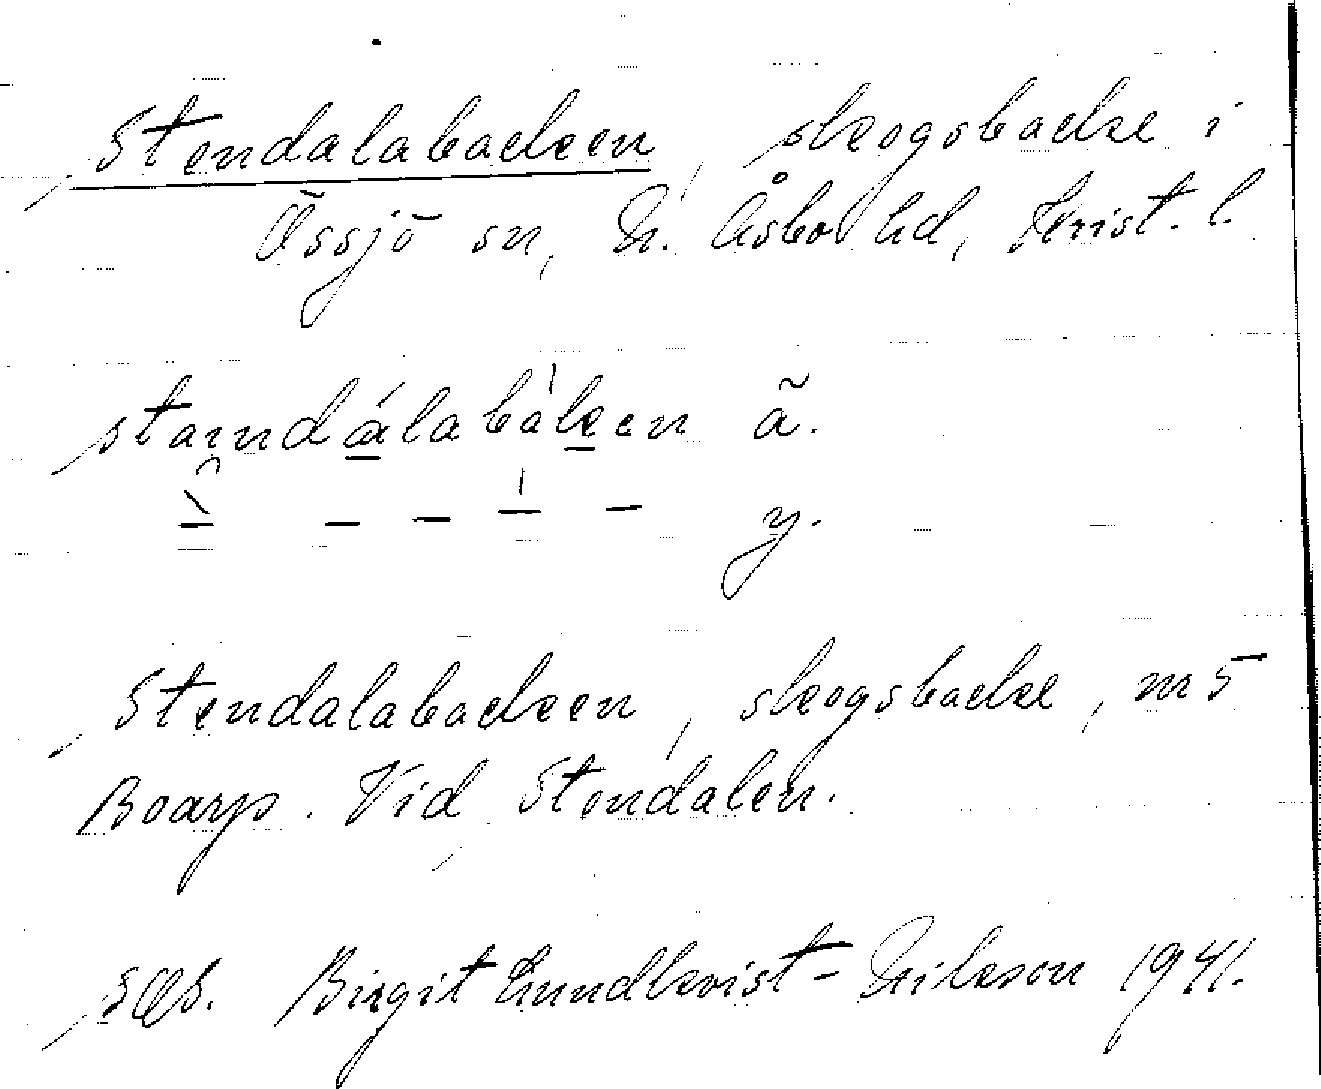 Stendalabacken, skogsbacke i
Össjö sn, N. Åsbo hd, Krist. l.
ã.
y.
Stendalabacken, skogsbacke, m5
Boarp. Vid Stendalen.
Birgit Lundkvist-Nilsson 1941.